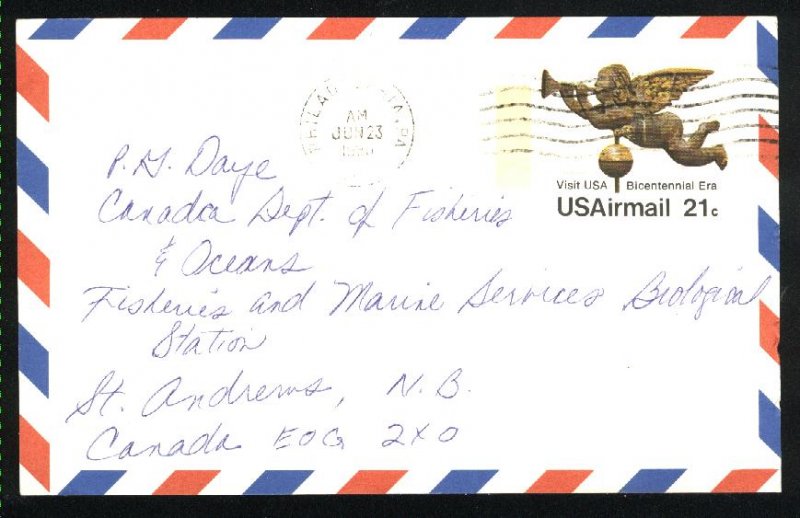 PHILADELPHIA, PA
AM
JUN 23
Visit USA Bicentennial Era
USAirmail 21c
P.G. Daye
Canada Dept. of Fisheries
& Oceans
Fisheries and Marine Services Biological
Station
St. Andrews, N.B.
Canada E0G 2X0